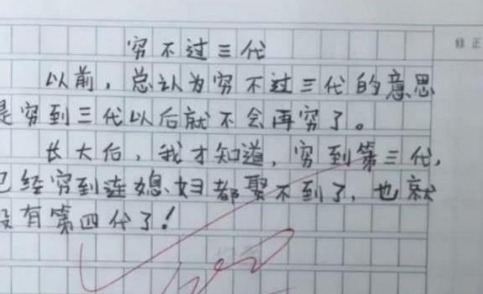 穷不过三代
以前，总认为穷不过三代的意思
是穷到三代以后就不会再穷了。
长大后，我才知道，穷到第三代，
已经穷到连媳妇都娶不到了，也就
没有第四代了！
修正